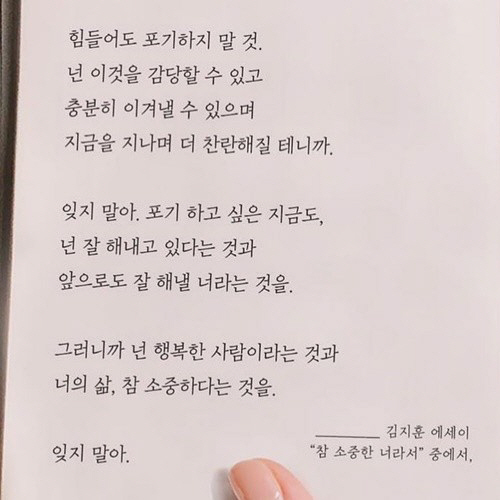 힘들어도 포기하지 말 것.
넌 이것을 감당할 수 있고
충분히 이겨낼 수 있으며
지금을 지나며 더 찬란해질 테니까.
잊지 말아. 포기 하고 싶은 지금도,
넌 잘 해내고 있다는 것과
앞으로도 잘 해낼 너라는 것을.
그러니까 넌 행복한 사람이라는 것과
너의 삶, 참 소중하다는 것을.
잊지 말아.
김지훈 에세이
“참 소중한 너라서” 중에서,